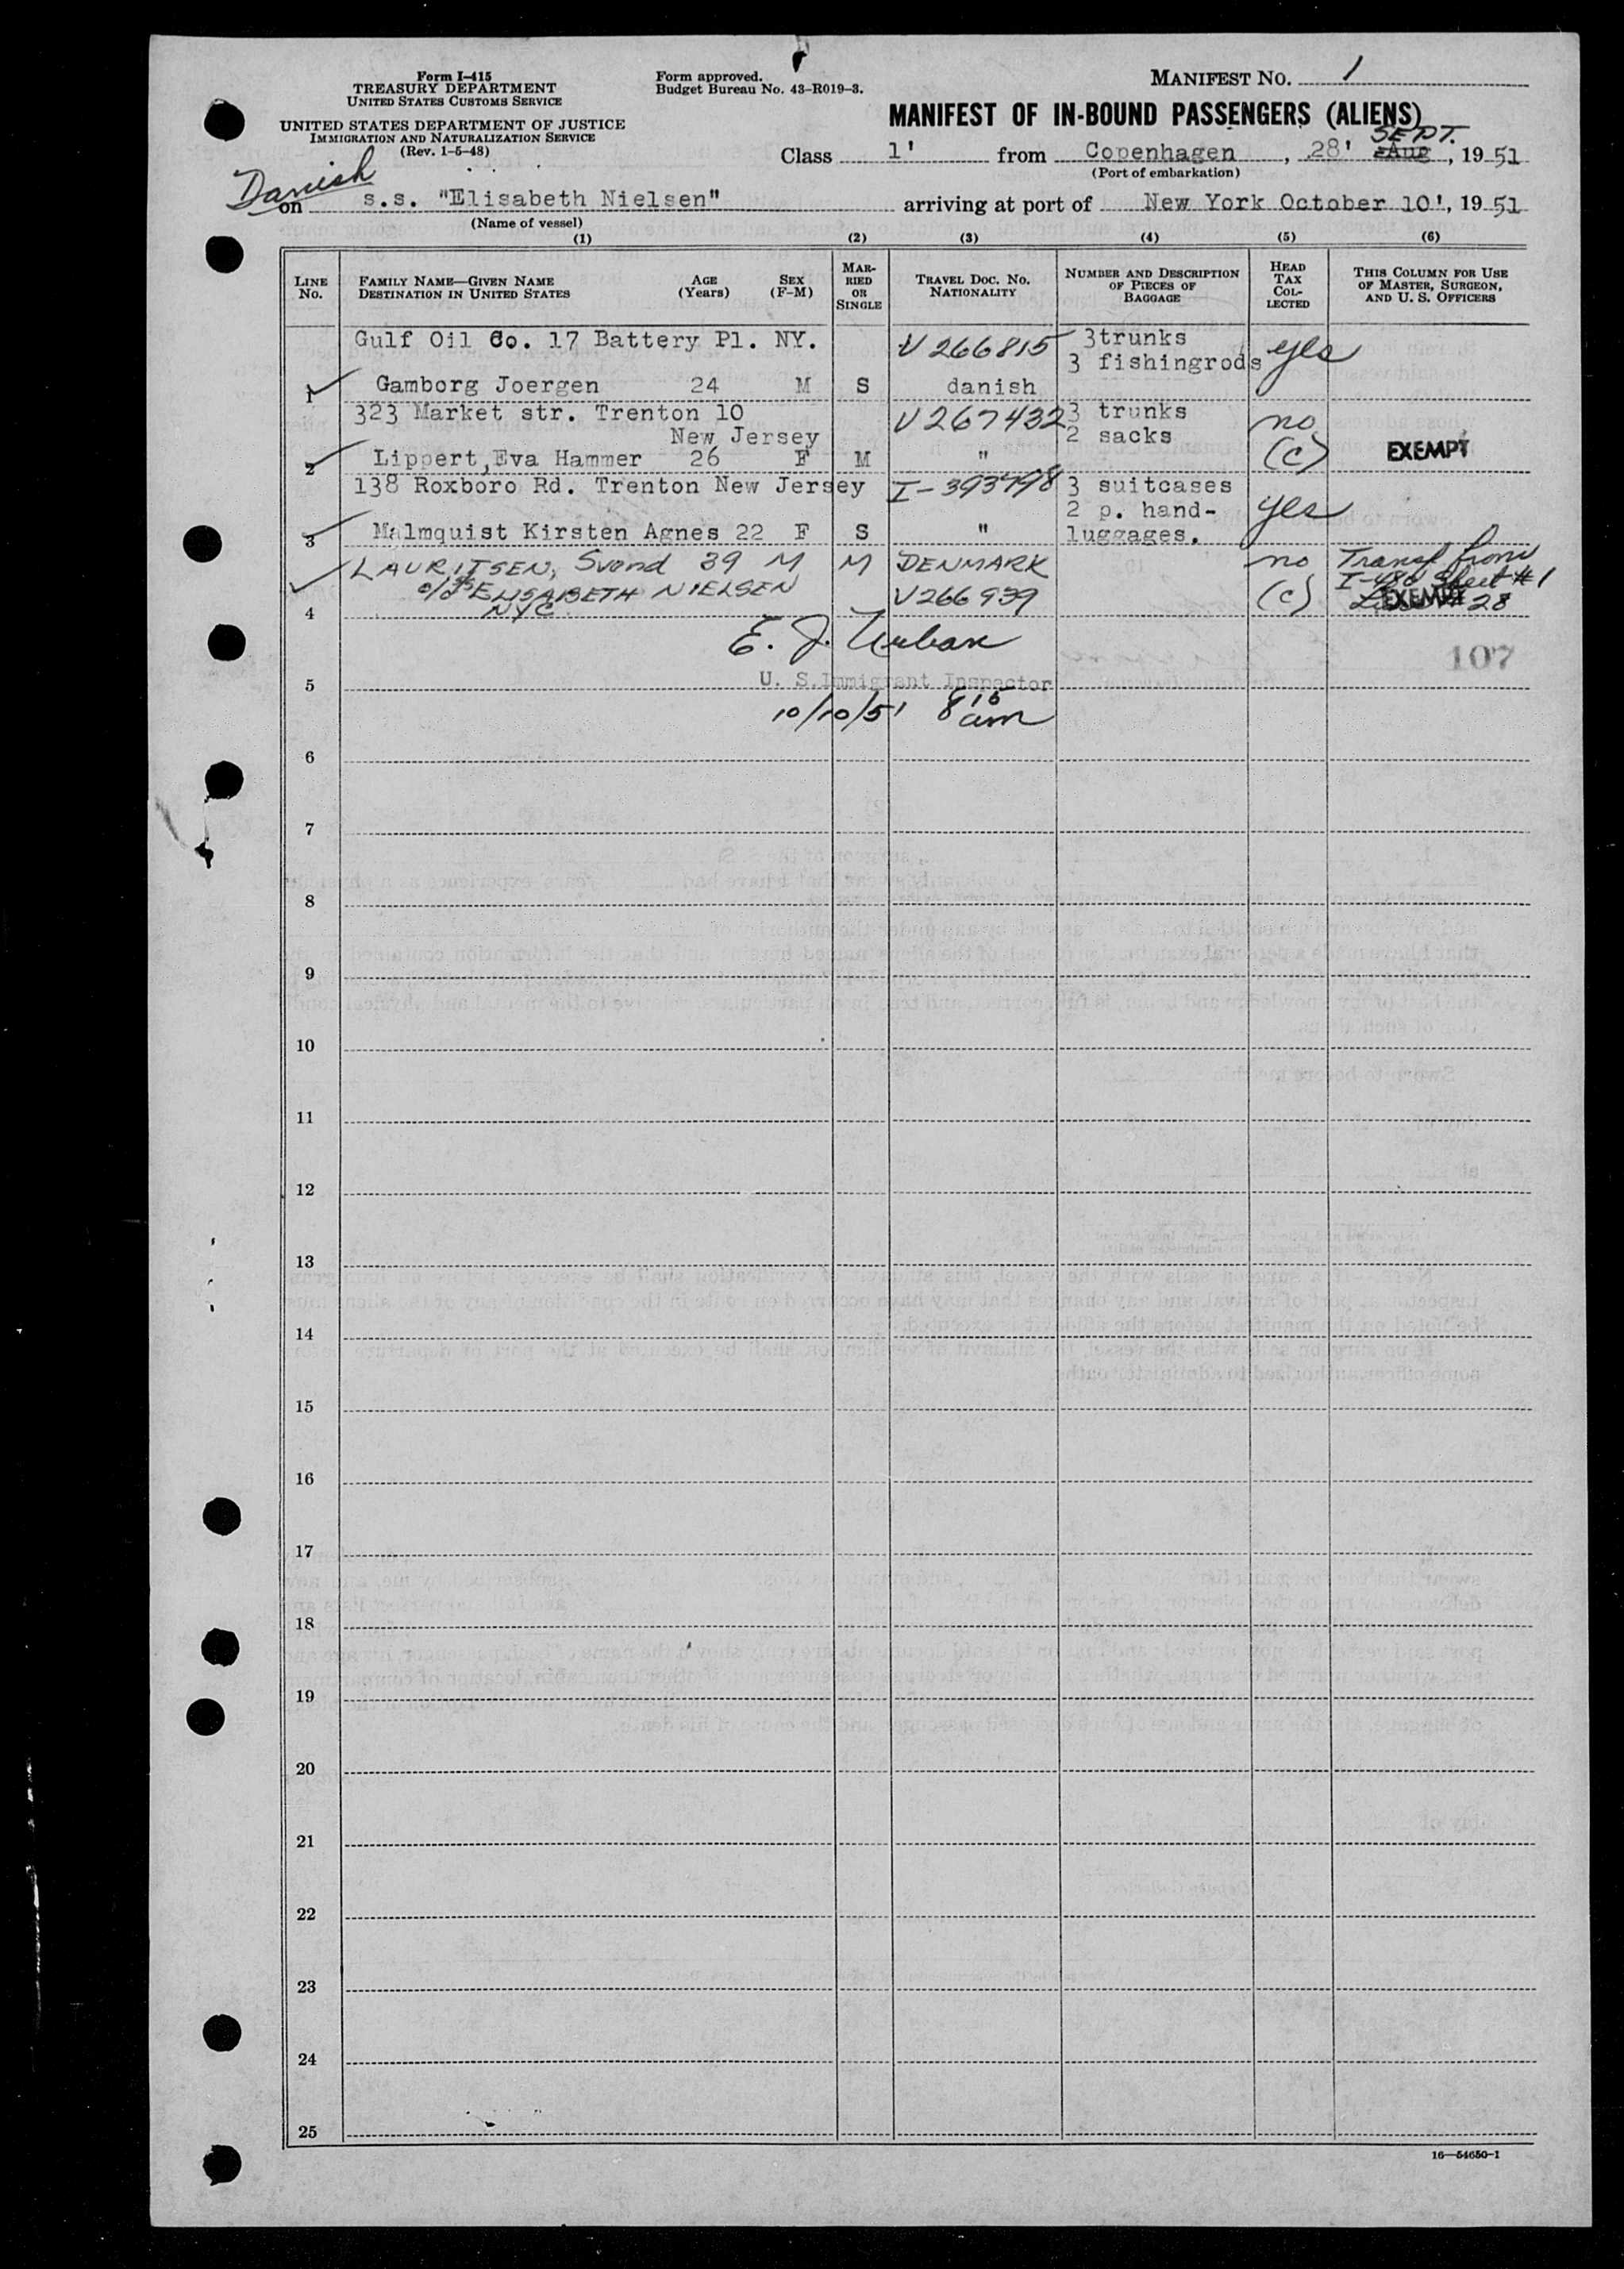 Form I-415
TREASURY DEPARTMENT
UNITED STATES CUSTOMS SERVICE
UNITED STATES DEPARTMENT OF JUSTICE
IMMIGRATION AND NATURALIZATION SERVICE
(Rev. 1-5-48)
Form approved.
Budget Bureau No. 43-R019-3.
MANIFEST No. 1
MANIFEST OF IN-BOUND PASSENGERS (ALIENS)
SEPT.
Class 1' from Copenhagen, 28' Aug, 19 51
(Port of embarkation)
Danish
on s.s. "Elisabeth Nielsen" arriving at port of New York October 10', 19 51
(Name of vessel)
(1) (2) (3) (4) (5) (6)
LINE No.
FAMILY NAME—GIVEN NAME
DESTINATION IN UNITED STATES
AGE (Years)
SEX (F-M)
MARRIED OR SINGLE
TRAVEL DOC. NO.
NATIONALITY
NUMBER AND DESCRIPTION OF PIECES OF BAGGAGE
HEAD TAX COLLECTED
THIS COLUMN FOR USE OF MASTER, SURGEON, AND U. S. OFFICERS
Gulf Oil Co. 17 Battery Pl. NY. V 266815 3 trunks
3 fishingrods yes
1 Gamborg Joergen 24 M S danish
323 Market str. Trenton 10 V 267432 3 trunks no
New Jersey 2 sacks
2 Lippert, Eva Hammer 26 F M " (C) EXEMPT
138 Roxboro Rd. Trenton New Jersey I-393498 3 suitcases
2 p. hand- yes
3 Malmquist Kirsten Agnes 22 F S " luggages.
LAURITSEN, Svend 39 M M DENMARK no Transf from
c/o SS ELISABETH NIELSEN V266939 (C) I-480 Sheet #1
4 NYC. EXEMPT Line # 28
E. J. Urban
107
5 U. S. Immigrant Inspector
10/10/51 8 15 am
6
7
8
9
10
11
12
13
14
15
16
17
18
19
20
21
22
23
24
25
16—54650-1